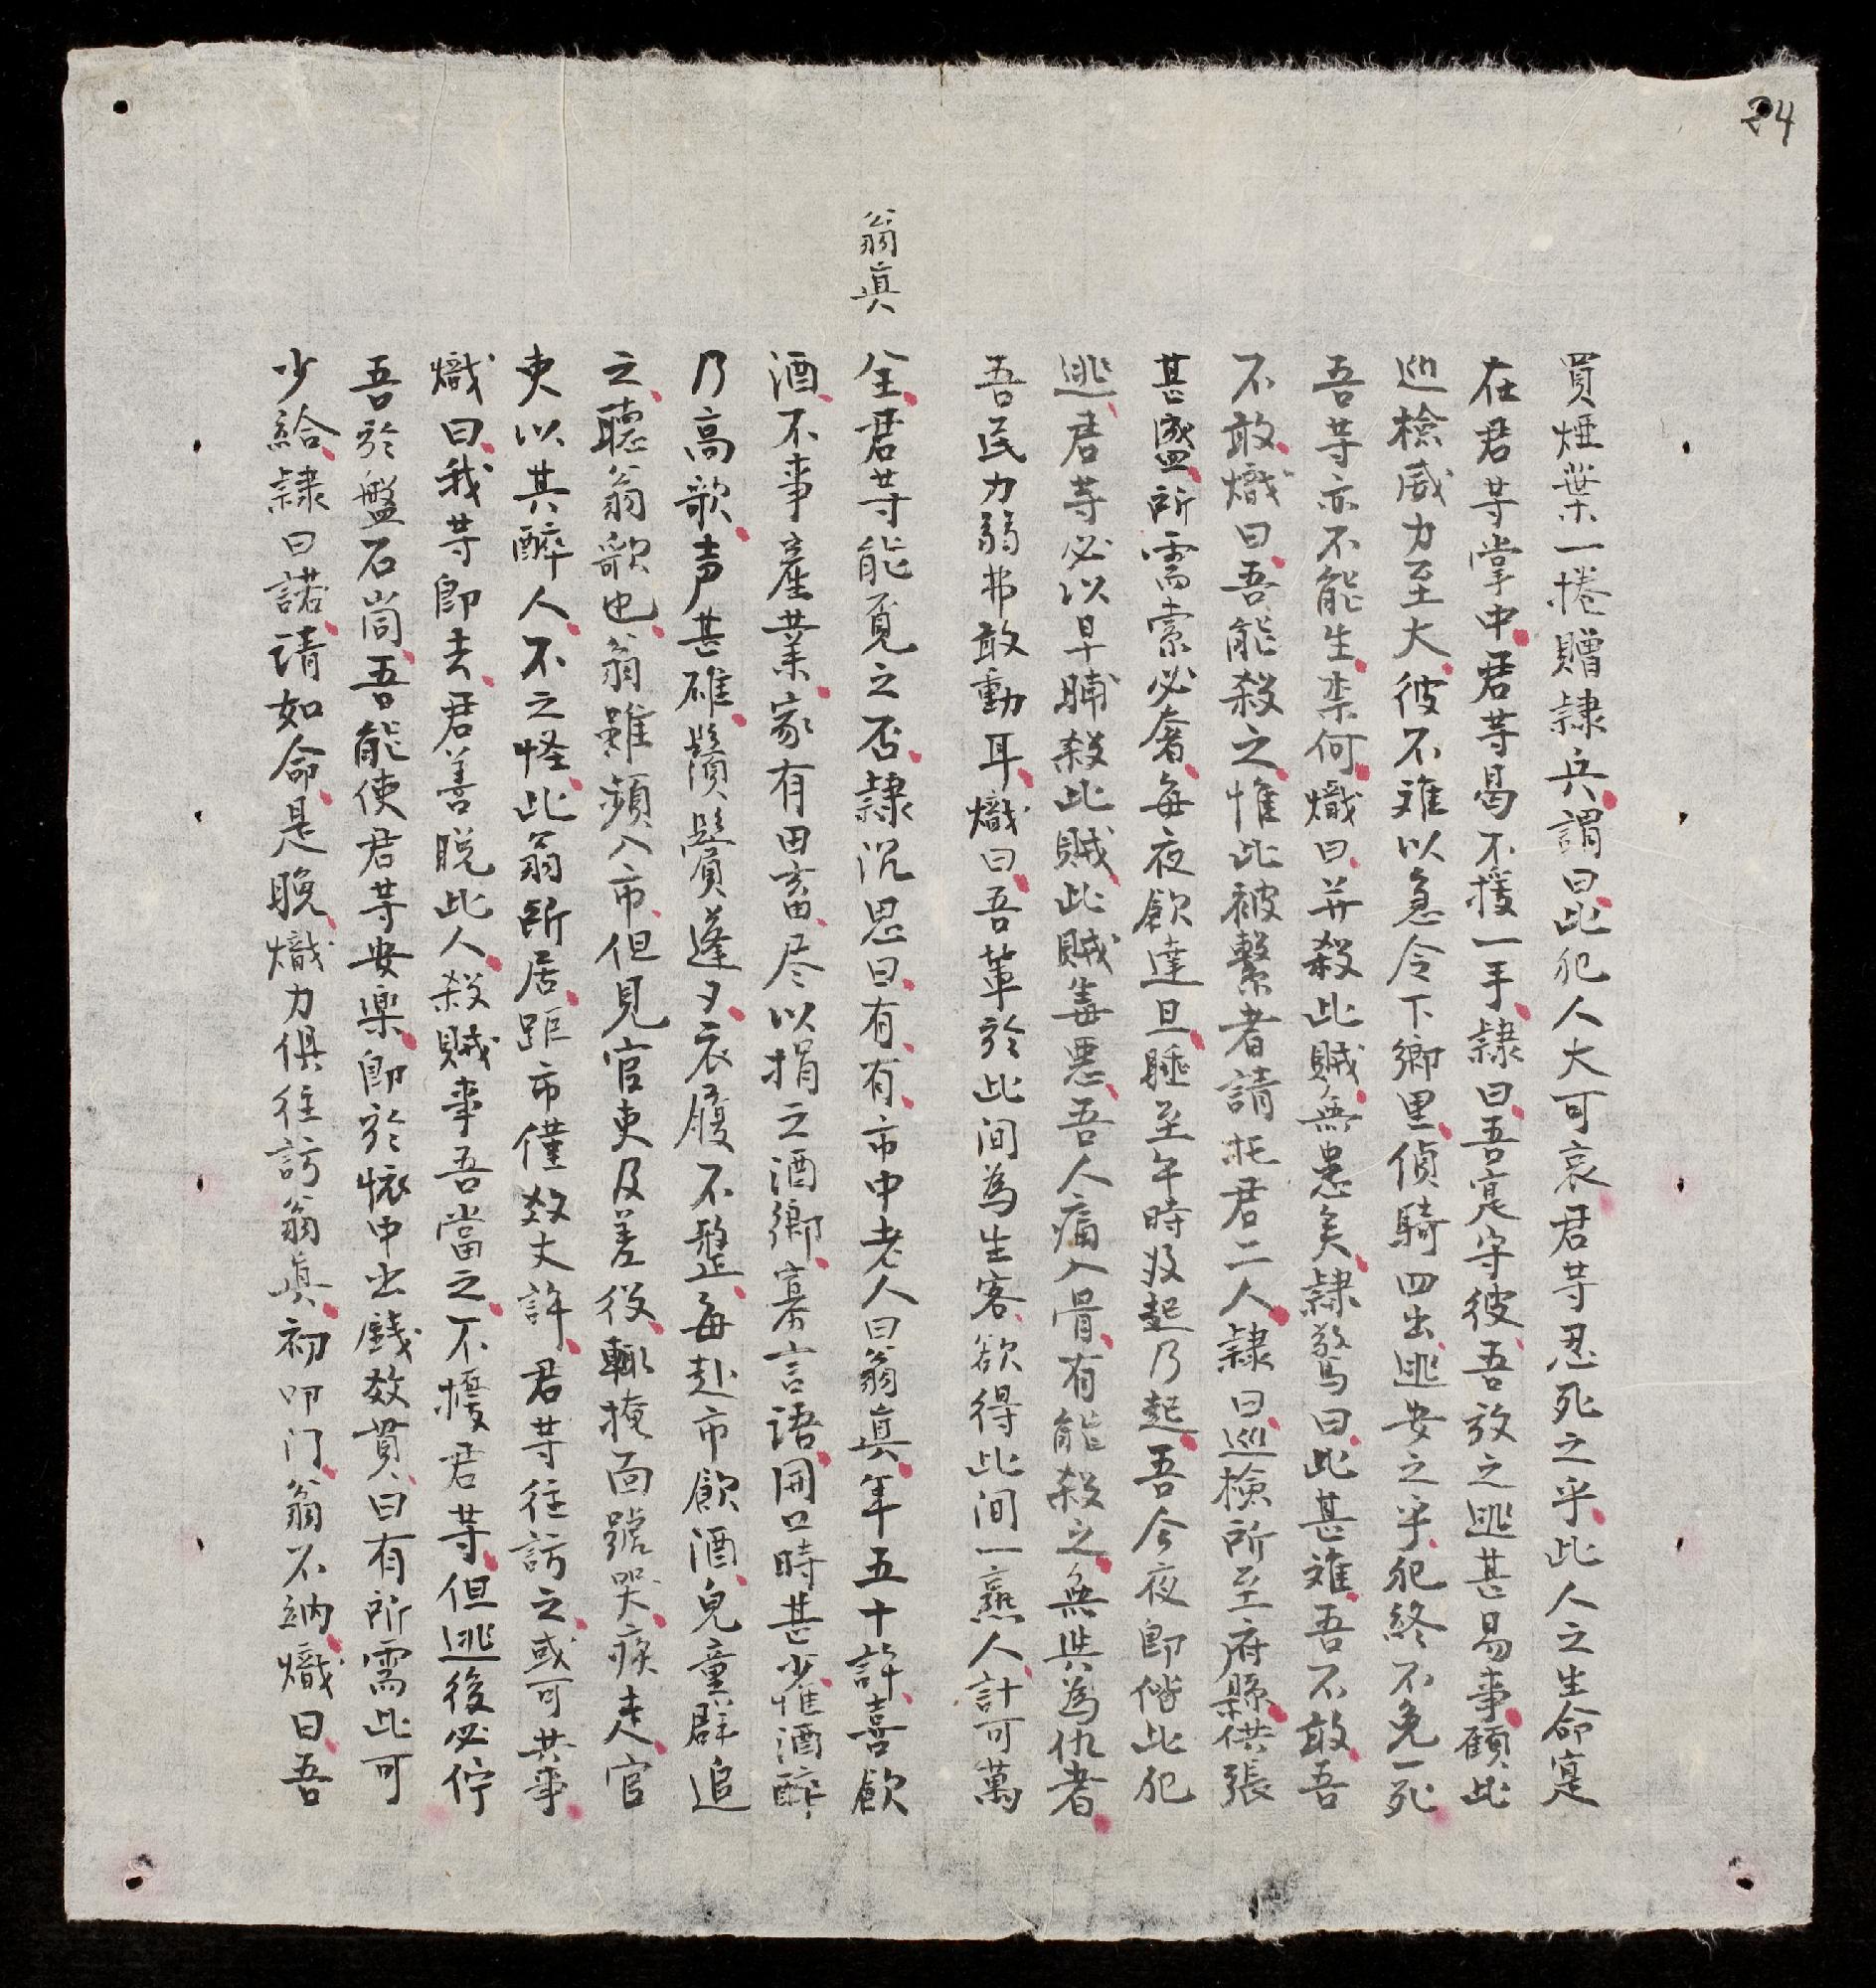 24
買烟葉一捲贈隷兵謂曰此犯人大可哀君䓁忍死之乎此人之生命寔
在君䓁掌中君䓁曷不援一手隷曰吾寔守彼吾放之逃甚易事顧此
巡檢威力至大彼不难以急令下鄉里偵騎四出逃安之乎犯終不免一死
吾䓁亦不能生柰何熾曰并殺此賊無患矣隷驚曰此甚难吾不敢吾
不敢熾曰吾能殺之惟此被繫者請托君二人隷曰巡檢所至府縣供張
甚盛所需索必奢每夜飲達旦睡至午時始起乃起吾今夜即偕此犯
逃君䓁必以早晡殺此賊此賊毒悪吾人痛入骨有能殺之無與為仇者
吾民力弱弗敢動耳熾曰吾軰於此间為生客欲得此间一燕人計可萬
翁真
全君䓁能覔之否隷沉思曰有有市中老人曰翁真年五十許喜飲
酒不事產業家有田畜尽以捐之酒鄉寡言語開口時甚少惟酒醉
乃高歌声甚碓鬚鬢蓬夕衣履不整每赴市飲酒皃童群追
之聴翁歌也翁雖頻入市但見官吏及差役輙掩面號哭疾走官
吏以其醉人不之怪此翁所居距市僅数丈許君䓁往訪之或可共事
熾曰我䓁即去君善脱此人殺賊事吾當之不擾君䓁但逃後必佇
吾於盤石峝吾能使君䓁安楽即於懷中出錢数貫曰有所需此可
少給隷曰諾请如命是晚熾力俱往訪翁真初叩门翁不納熾曰吾